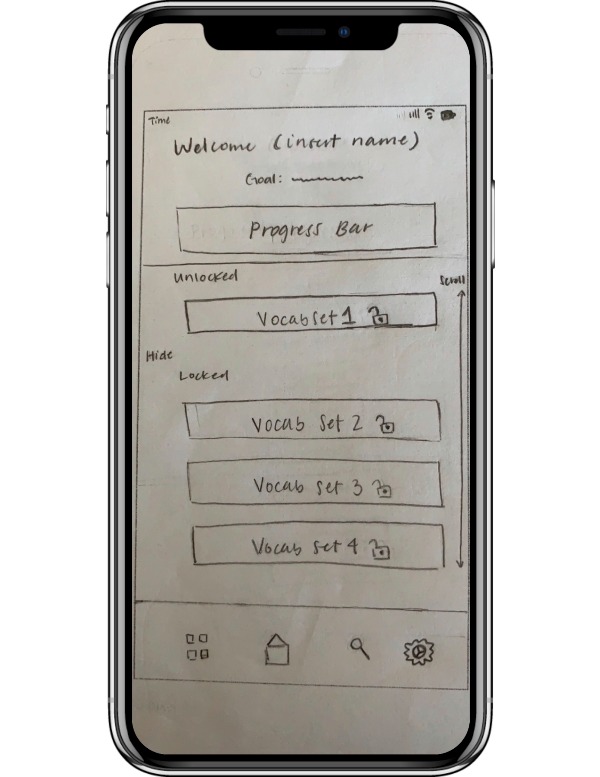 Time
Welcome (insert name)
Goal:
Progress Bar
Unlocked
Scroll
Vocab Set 1
Hide
Locked
Vocab Set 2
Vocab Set 3
Vocab Set 4